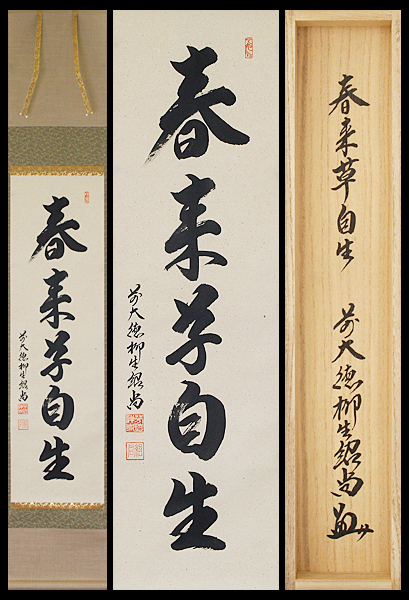 春来草自生
前大徳柳生紹尚
春来草自生
前大徳柳生紹尚
春来草自生
前大徳柳生紹尚